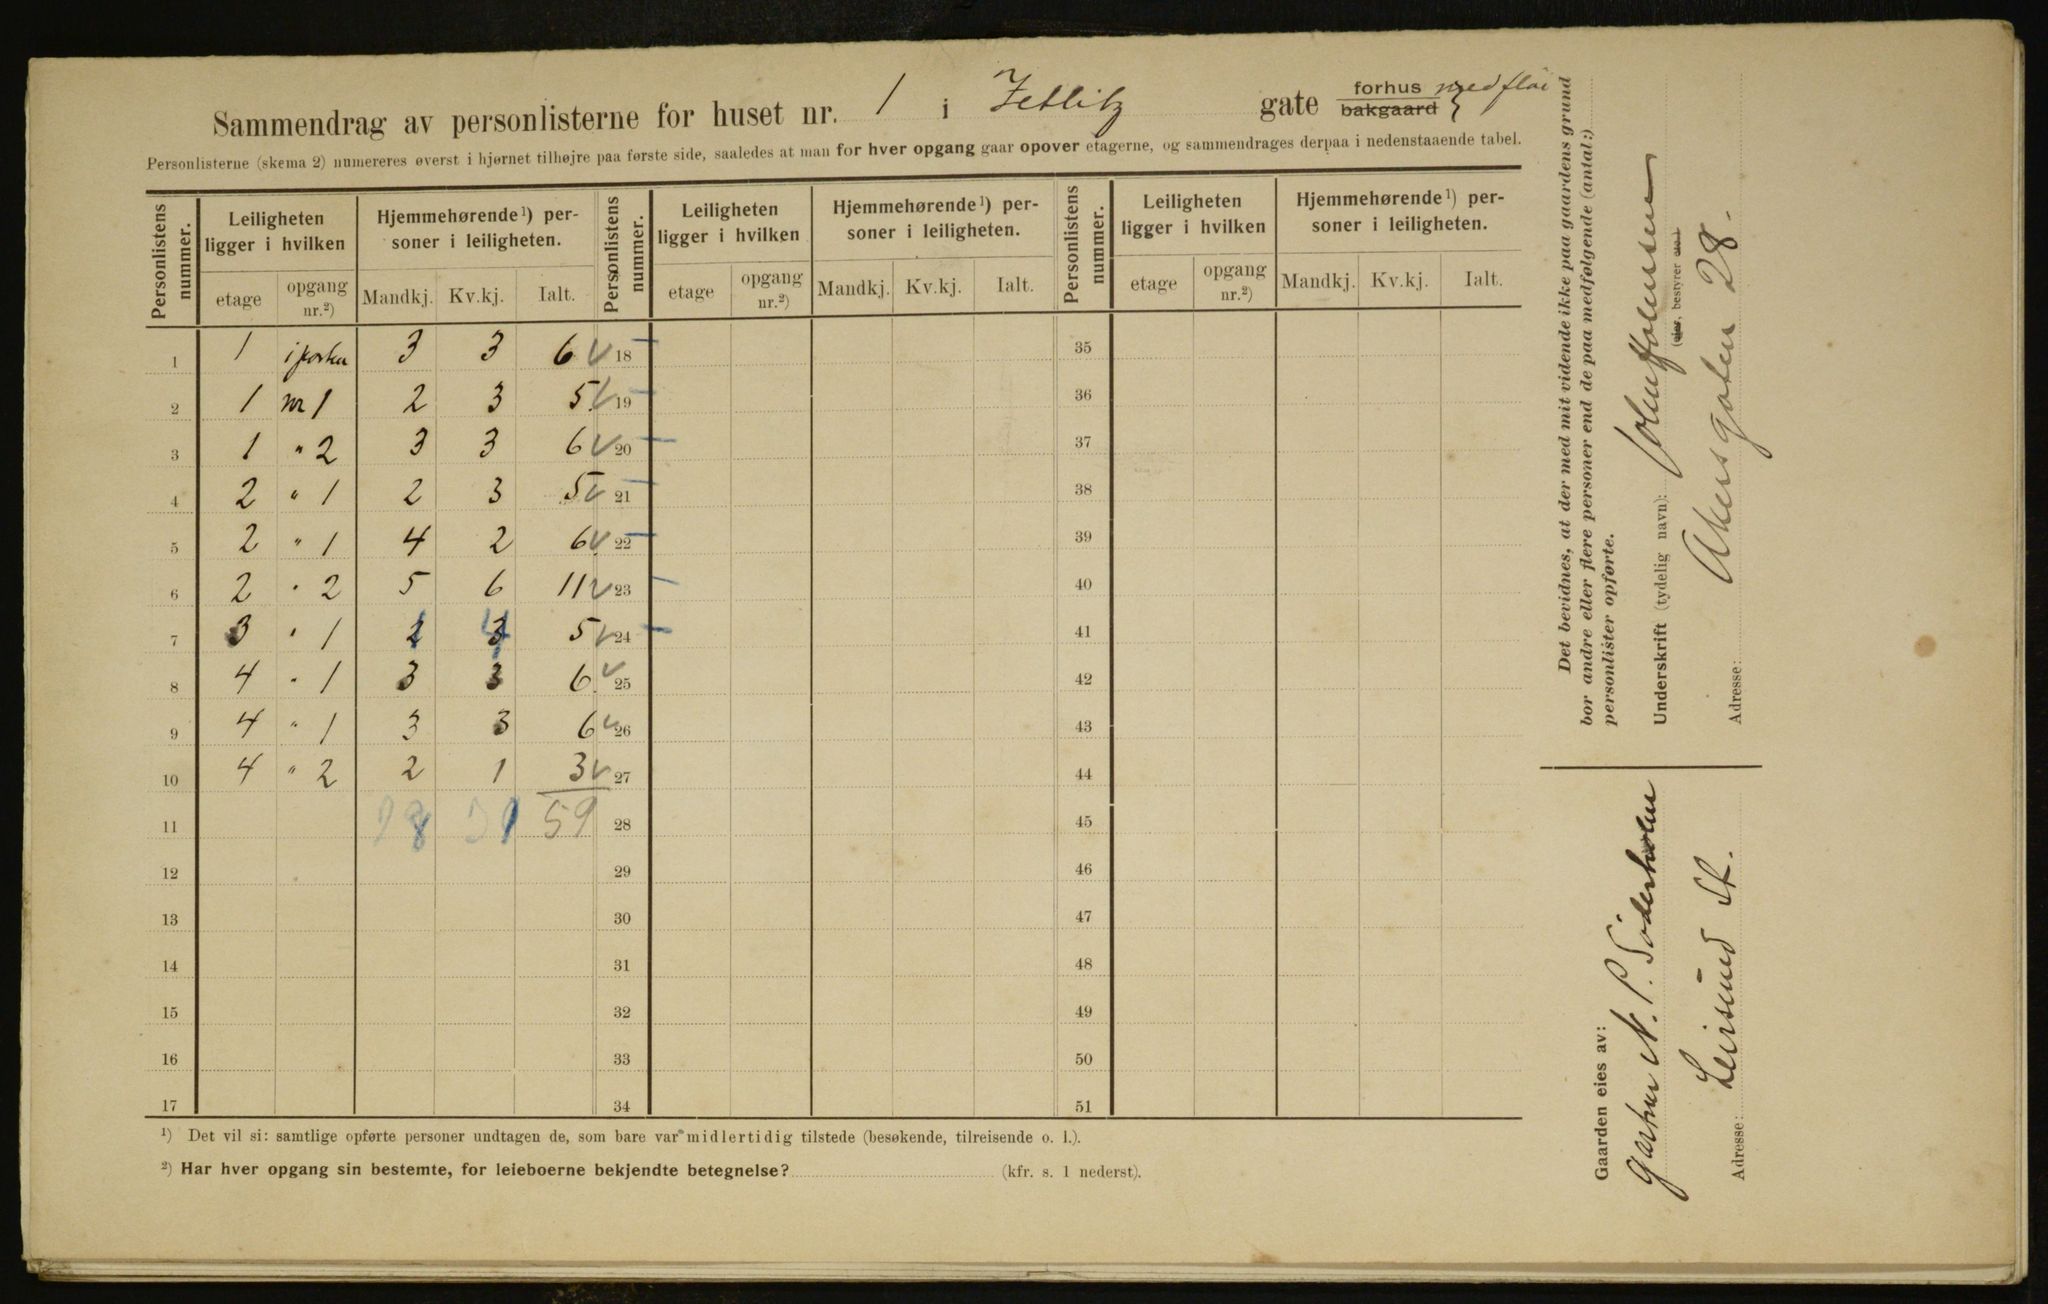 Sammendrag av personlisterne for huset nr. 1 i Zetlitz gate forhus bakgaard } med fløi
Personlisterne (skema 2) numereres øverst i hjørnet tilhøjre paa første side, saaledes at man for hver opgang gaar opover etagerne, og sammendrages derpaa i nedenstaaende tabel.
Personlistens nummer. Leiligheten ligger i hvilken Hjemmehørende ¹) personer i leiligheten. Personlistens nummer. Leiligheten ligger i hvilken Hjemmehørende ¹) personer i leiligheten. Personlistens nummer. Leiligheten ligger i hvilken Hjemmehørende ¹) personer i leiligheten.
etage opgang nr.²) Mandkj. Kv.kj. Ialt. etage opgang nr.²) Mandkj. Kv.kj. Ialt. etage opgang nr.²) Mandkj. Kv.kj. Ialt.
1 1 i porten 3 3 6 18 35
2 1 nr 1 2 3 5 19 36
3 1 " 2 3 3 6 20 37
4 2 " 1 2 3 5 21 38
5 2 " 1 4 2 6 22 39
6 2 " 2 5 6 11 23 40
7 3 " 1 1 4 5 24 41
8 4 " 1 3 3 6 25 42
9 4 " 1 3 3 6 26 43
10 4 " 2 2 1 3 27 44
11 28 31 59 28 45
12 29 46
13 30 47
14 31 48
15 32 49
16 33 50
17 34 51
¹) Det vil si: samtlige opførte personer undtagen de, som bare var midlertidig tilstede (besøkende, tilreisende o. l.).
²) Har hver opgang sin bestemte, for leieboerne bekjendte betegnelse? (kfr. s. 1 nederst).
Det bevidnes, at der med mit vidende ikke paa gaardens grund
bor andre eller flere personer end de paa medfølgende (antal:)
personlister opførte.
Underskrift (tydelig navn):
(eier, bestyrer etc.)
Adresse: Akersgaten 28.
Gaarden eies av:
Gartner N. P. Söderholm
Adresse: Leirsund St.